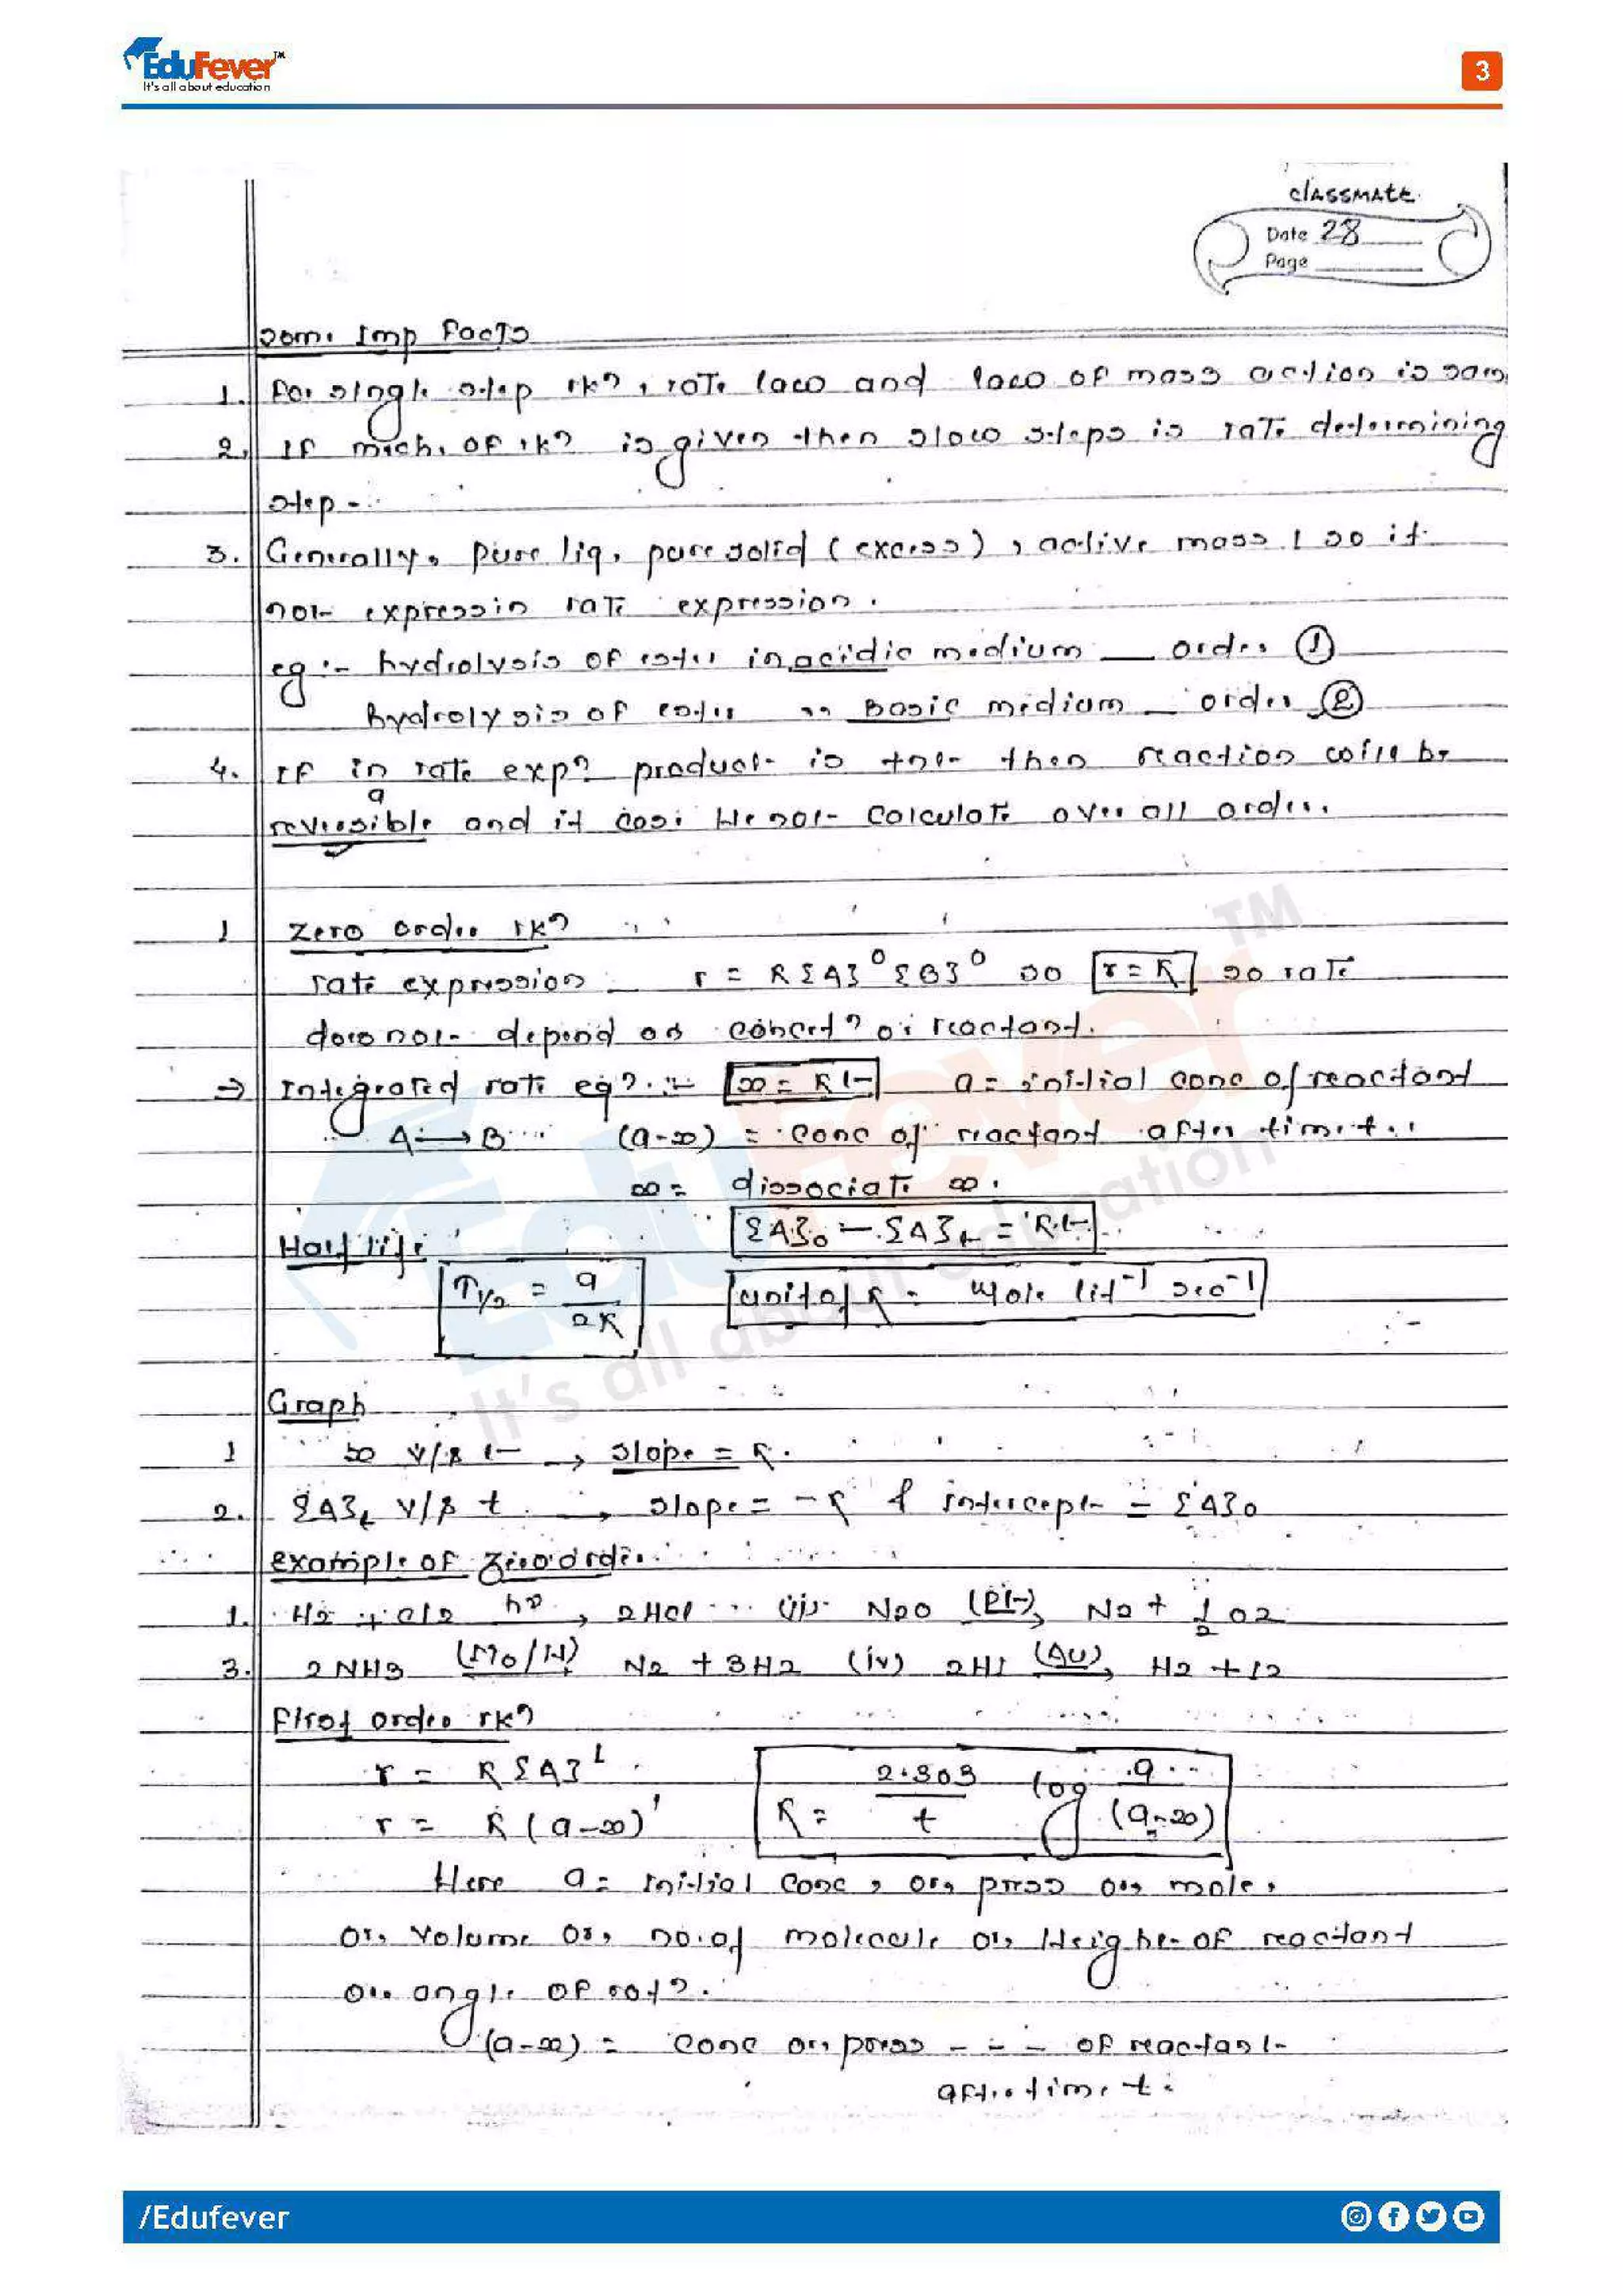 EduFever™
It's all about education
3
classmate
Date 28
Page
Some Imp Facts
1. For single step rkn, rate law and law of mass action is same
2. If mech. of rkn is given then slow steps is rate determining
step -
3. Generally, pure liq, pure solid (excess), active mass 1 so it
not express in rate expression.
eg :- hydrolysis of ester in acidic medium — order ①
hydrolysis of ester '' Basic medium — order ②
4. If in rate expn product is then reaction will be
a
reversible and it case We not calculate over all order.
1 Zero order rkn
rate expression r = K[A]⁰[B]⁰ so r = K so rate
does not depend on concertn of reactant.
⇒ Integrated rate eqn. :- x = Kt a = initial conc of reactant
A → B (a-x) = conc of reactant after time t.
x = dissociate x.
Half life [A]₀ - [A]t = K.t
T1/2 = a/2K unit of K = Mole lit⁻¹ sec⁻¹
Graph
1 x v/s t → slope = K.
2. [A]t v/s t → slope = -K & intercept = [A]₀
example of Zero order
1. H2 + Cl2 hν→ 2HCl (ii) N2O (Pt)→ N2 + 1/2 O2
3. 2NH3 (Mo/W)→ N2 + 3H2 (iv) 2HI (Au)→ H2 + I2
First order rkn
r = K[A]¹
r = K(a-x)¹ K = 2.303/t log a/(a-x)
Here a = Initial conc, or, press or, mole,
or, volume or, no. of molecule or, Height of reactant
or angle of rotn.
(a-x) = conc or, press - - - of reactant
after time t.
EduFever™
It's all about education
/Edufever